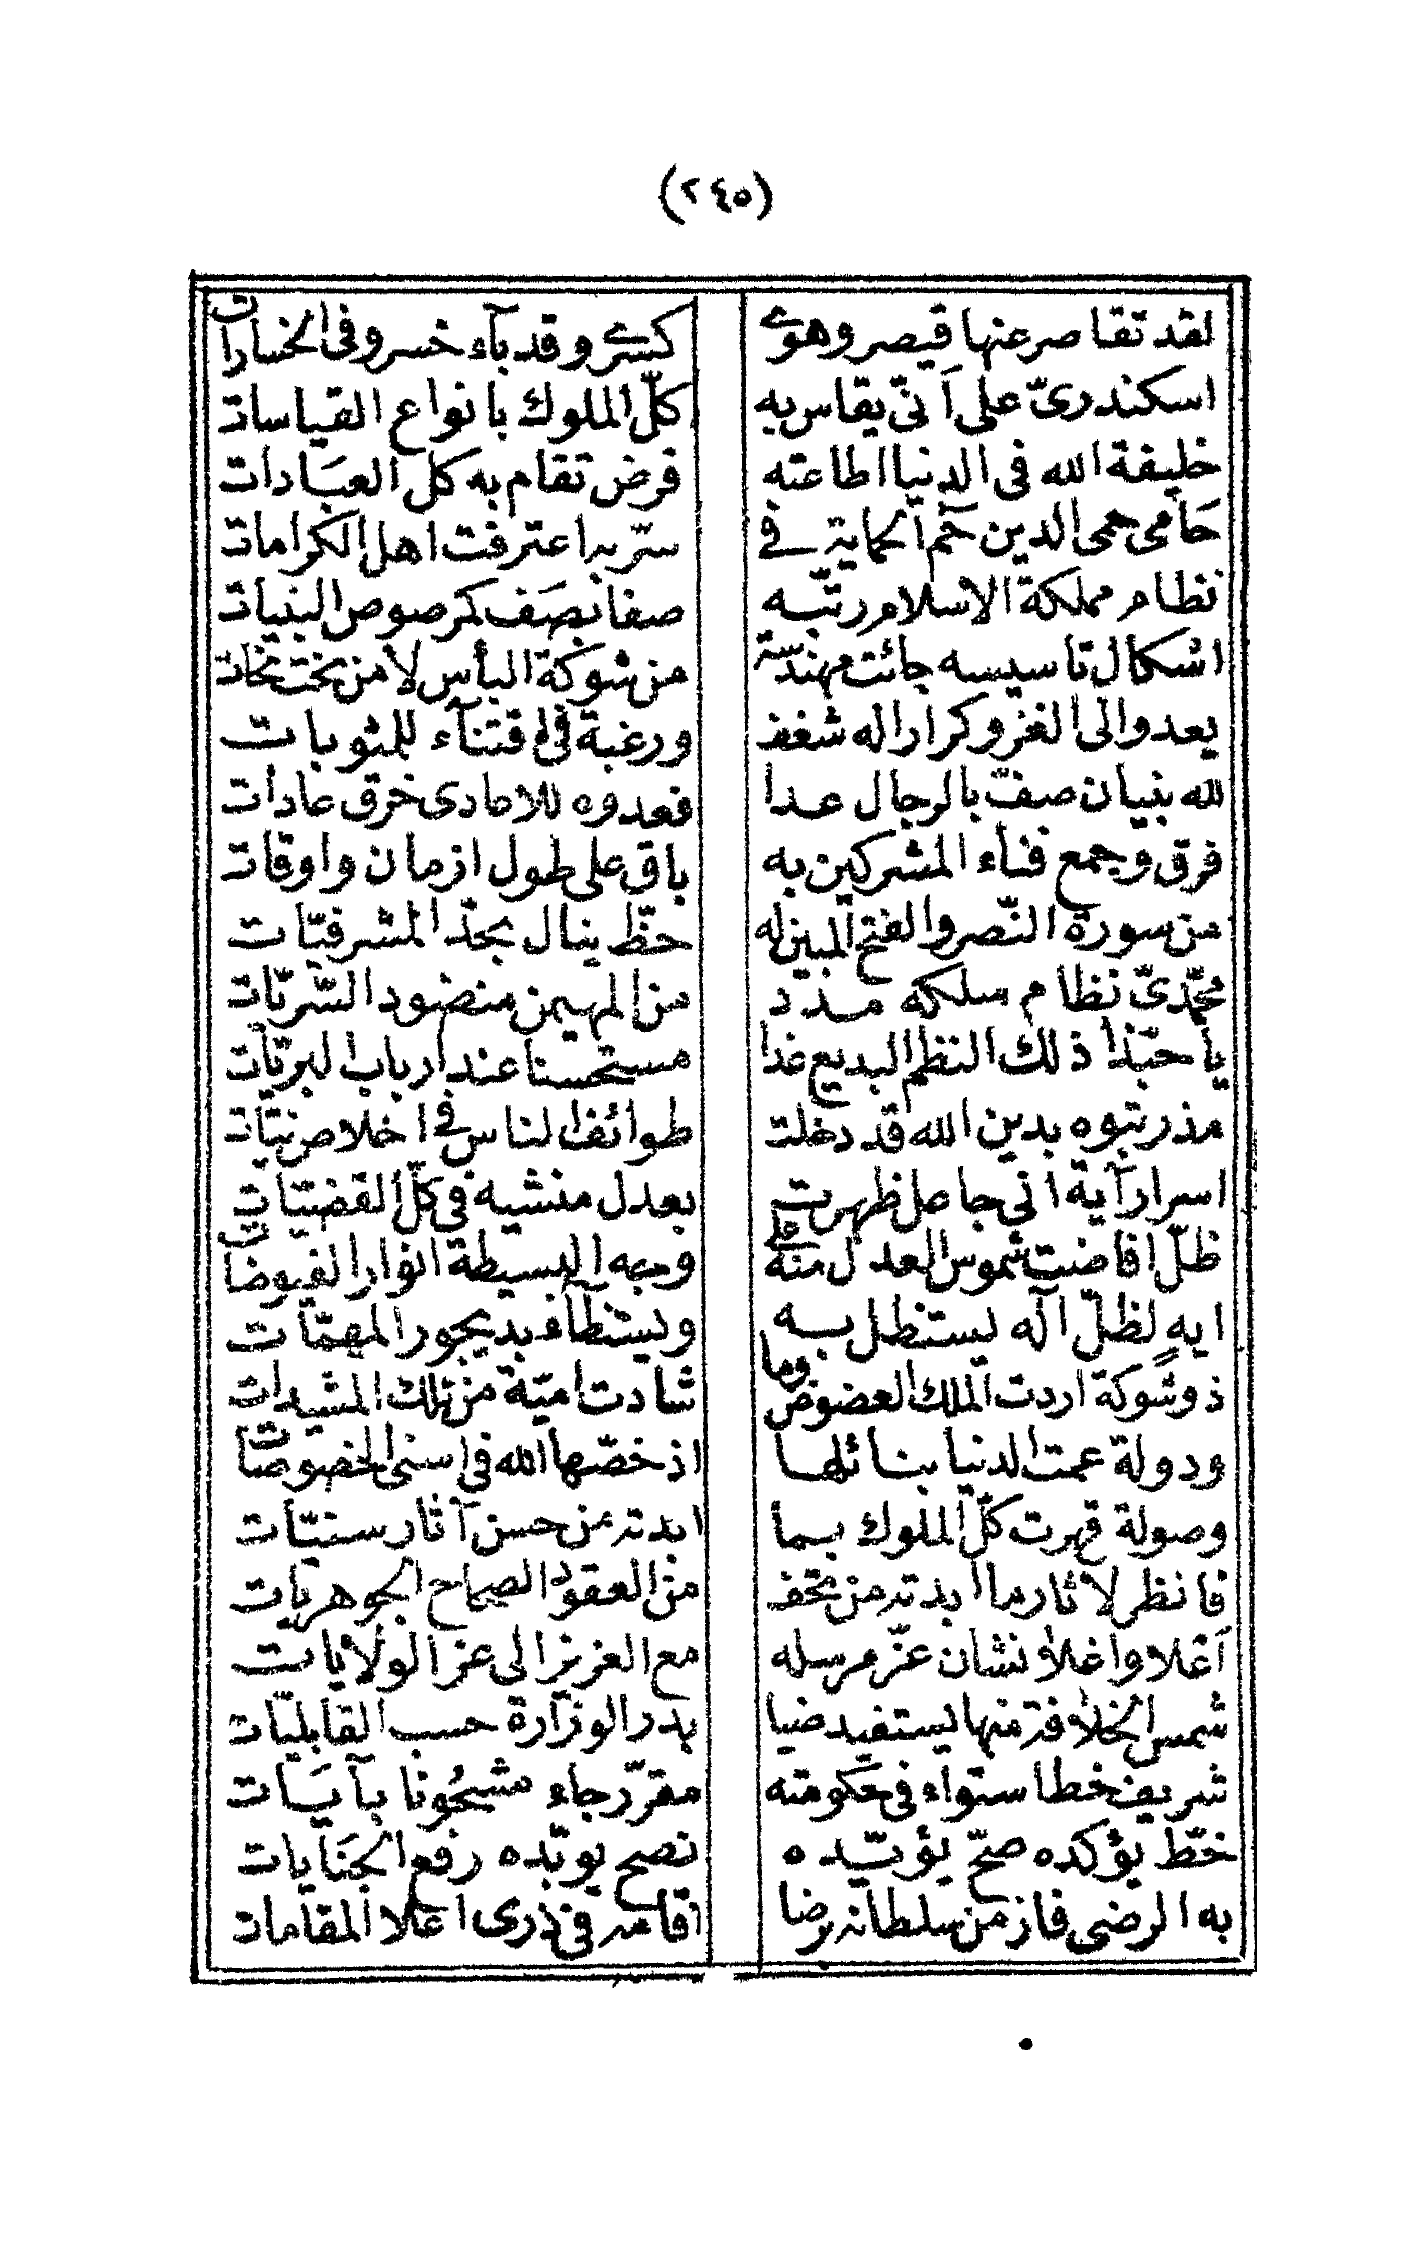 (٢٤٥)
لقد تقاصر عنها قيصر وهوى كسرى وقد بآء خسرو فى الخسارات
اسكندرىّ على آنّى يقاس به كلّ الملوك بانواع القياسات
خليفة الله فى الدنيا اطاعته فرض تقام به كل العبَادات
حَامى حمى الدين حتم الحماية فى سرّ به اعترفت اهل الكرامات
نظام مملكة الاسلام رتّبه صفا نصَف كمرصوص البنيات
اشكال تاسيسه جائت مهندسة من شوكة البأس لا من تخت تخات
يعدو الى الغزو كرارا له شغف ورغبة فى اقتنآء للمثوبات
لله بنيان صفّ بالرجال عدا فعدوه للاعادى خرق عادات
فرق وجمع فناء المشركين به باق على طول ازمان واوقات
من سورة النّصر والفتح المبين له حظّ ينال بحدّ المشرفيّات
محمّدىّ نظام سلكه مدد من المهيمن منضود السّريّات
يا حبّذا ذلك النظم البديع غدا مستحسنا عند ارباب البريّات
مذ رتبوه بدين الله قد دخلت طوائف الناس فى اخلاص نيّات
اسرار آية انى جاعل ظهرت بعدل منشيه فى كلّ القضيّات
ظلّ افاضت شموس العدل منه على وجه البسيطة انوار الفيوضات
ايهٍ لظلّ اله يستظل به ويستضآء بديجور المهمّات
ذو شوكة اردت الملك العضوض وما شادت اميّة من تلك المشيدات
ودولة عمت الدنيا بنائلها اذ خصّها الله فى اسنى الخصوصات
وصولة قهرت كلّ الملوك بما ابدته من حسن آثار سنيّات
فانظر لاثار ما ابدته من تحف من العقود الصحاح الجوهريات
آغلا واغلاو نشان عزّ مرسله مع العزيز الى عز الولايات
شمس الخلافة منها يستفيد ضيا بدر الوزارة حسب القابليّات
شريف خط استواء فى حكومته مقرّر جاء مشحُونا بآيَات
خطّ يؤكده صحّ يؤيّده نصح يويّده رفع الجنَايات
به الرضى فاز من سلطانه برضا اقامه فى ذرى اعلا المقامات